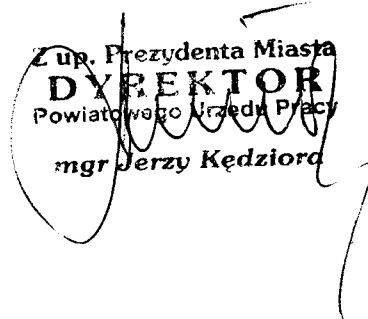 Z up. Prezydenta Miasta
DYREKTOR
Powiatowego Urzędu Pracy
mgr Jerzy Kędziora